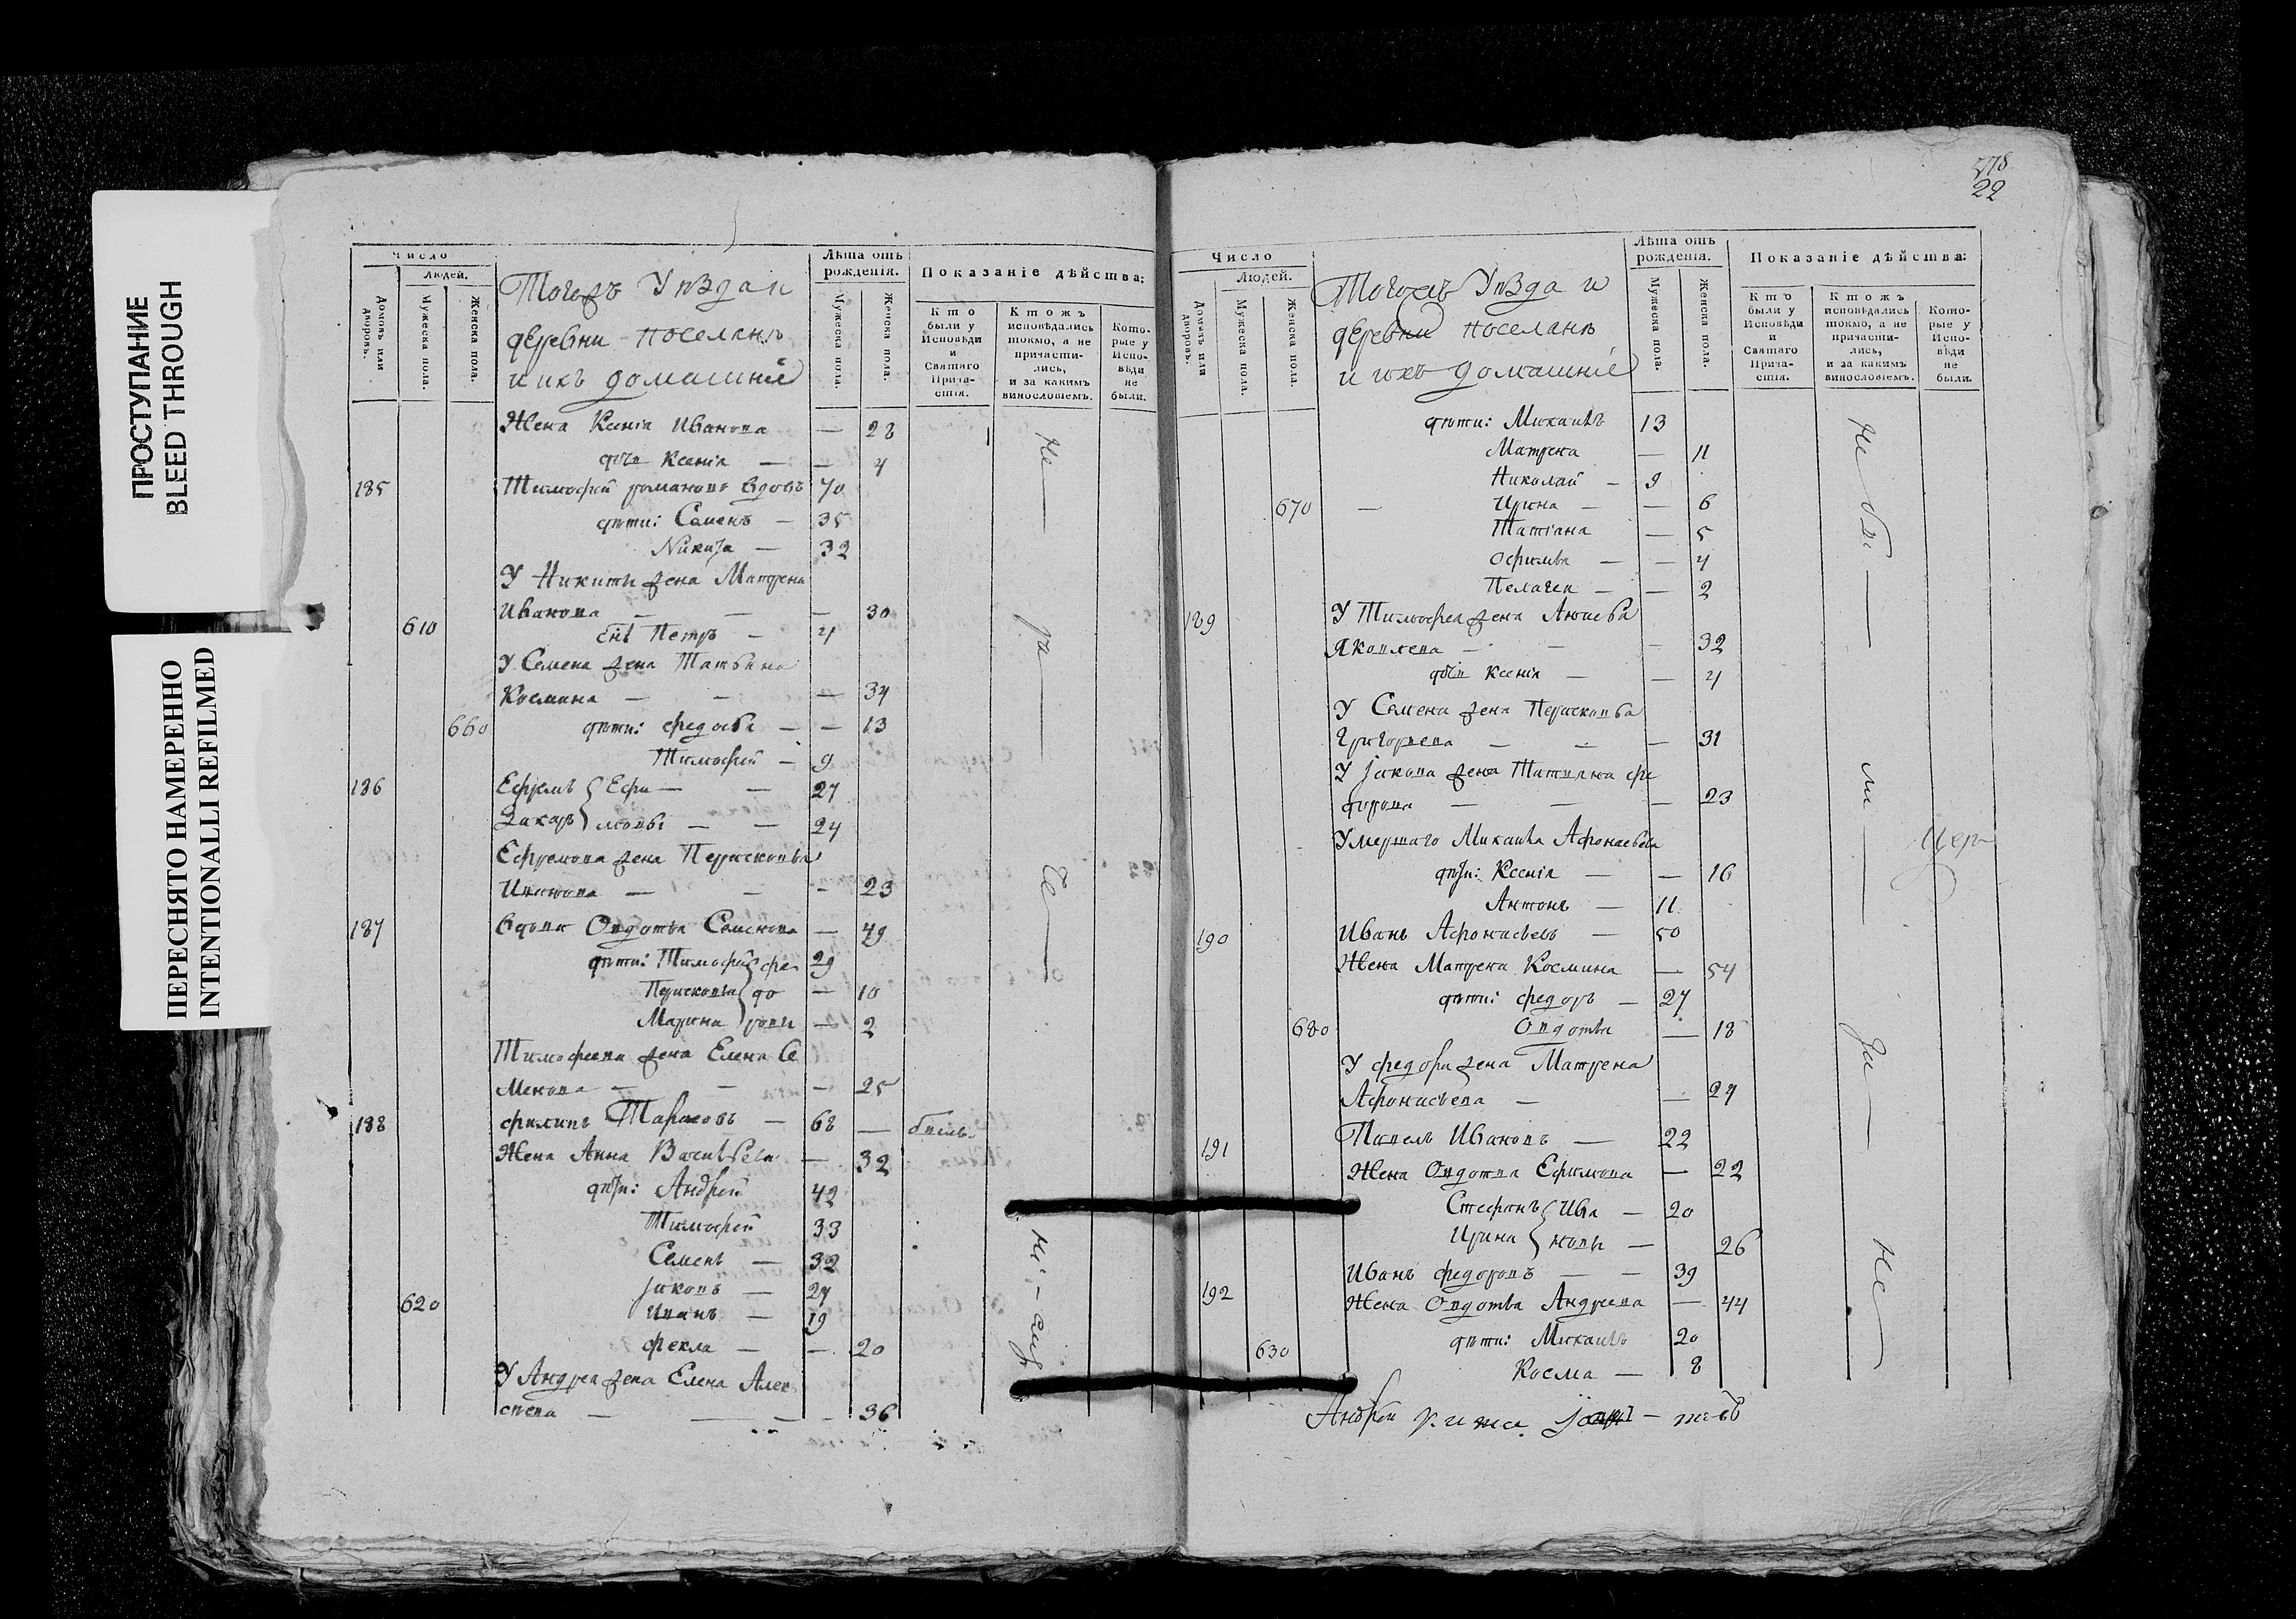 ПРОСТУПАНИЕ
BLEED THROUGH
ПЕРЕСНЯТО НАМЕРЕННО
INTENTIONALLI REFILMED
Число
Людей.
Домовъ или дворовъ.
Мужеска пола.
Женска пола.
Тогожъ Уѣзда и
деревни поселянъ
и ихъ домашніе
Лѣта отъ рожденія.
Мужеска пола.
Женска пола.
Показаніе дѣйства:
Кто были у Исповѣди и Святаго Прича-стія.
Ктожъ исповѣдались токмо, а не причасти-лись, и за какимъ винословіемъ.
Кото-рые у Испо-вѣди не были.
Жена Ксенія Иванова — 28
дочь Ксенія — — 4
185 Тимофей романовъ вдовъ 70
дѣти: Семенъ — 35
Никита — 32
У Никиты жена Матрена
Иванова — — — 30
610 Петръ — 4
У Семена жена Татьяна
Космина — — — 34
660 дѣти: федосья — — 13
Тимофей — 9
186 Ефремъ Ефи — — 27
Захаръ мовы — — 24
Ефремова жена Персковья
— — — 23
187 вдова Овдотья Семенова — 49
дѣти: Тимофей фе 29
Персковья до — 10
Марина ровы — 2
Тимофеева жена Елена Се
менова — — — 25
188 филипъ Тарасовъ — 68 —
Жена Анна Васильева — 32
дѣти: Андрей 42
Тимофей 33
Семенъ — 32
Іаковъ — 27
620 Иванъ — 19
фекла — — 20
У Андрея жена Елена Алек
сеева — — — — 36
278
22
Число
Людей.
Домовъ или дворовъ.
Мужеска пола.
Женска пола.
Тогожъ Уѣзда и
деревни поселянъ
и ихъ домашніе
Лѣта отъ рожденія.
Мужеска пола.
Женска пола.
Показаніе дѣйства:
Кто были у Исповѣди и Святаго Прича-стія.
Ктожъ исповѣдались токмо, а не причасти-лись, и за какимъ винословіемъ.
Кото-рые у Испо-вѣди не были.
дѣти: Михаилъ 13
Матрена — 11
Николай — 9
670 — Ирина — — 6
Татіана — 5
Офимья — — 4
Пелагея — — 2
189 У Тимофея жена
Яковлева — — — 32
дочь Ксенія — — 4
У Семена жена Персковья
Григорьева — — — 31
У Іакова жена Татьяна фе
дорова — — — 23
Умершаго Михаила Афонасьева
дѣти: Ксенія — — 16
Антонъ — 11
190 Иванъ Афонасьевъ — 50
Жена Матрена Космина — 54
дѣти: федоръ — 27
680 Овдотья — 18
У федора жена Матрена
Афонасьева — — 24
191 Павелъ Ивановъ — 22
Жена Овдотья Ефимова — 22
Стефанъ Ива — 20
Ирина новы — 26
192 Иванъ федоровъ — — 39
Жена Овдотья Андреева — 44
630 дѣти: Михаилъ 20
Косма — 8
Андрей